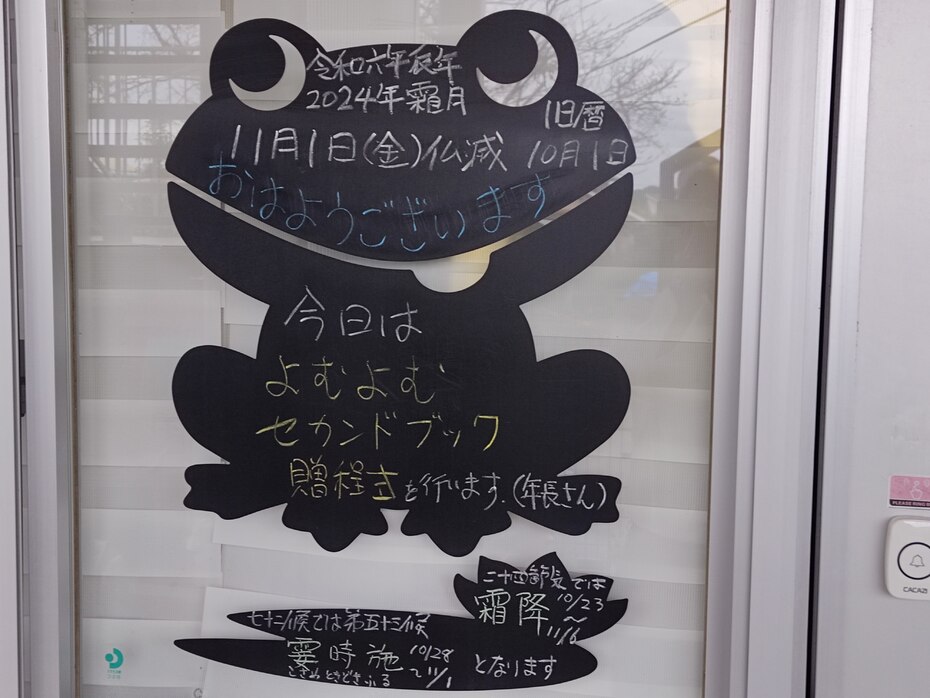 令和六年辰年
2024年霜月
旧暦
11月1日(金)仏滅 10月1日
おはようございます
今日は
よむよむ
セカンドブック
贈程式を行います。(年長さん)
二十四節気では
霜降 10/23
～
11/6
七十二候では第五十三候
霎時施 10/28
～11/1 となります
こさめときどきふる
PLEASE RING
CACAZI